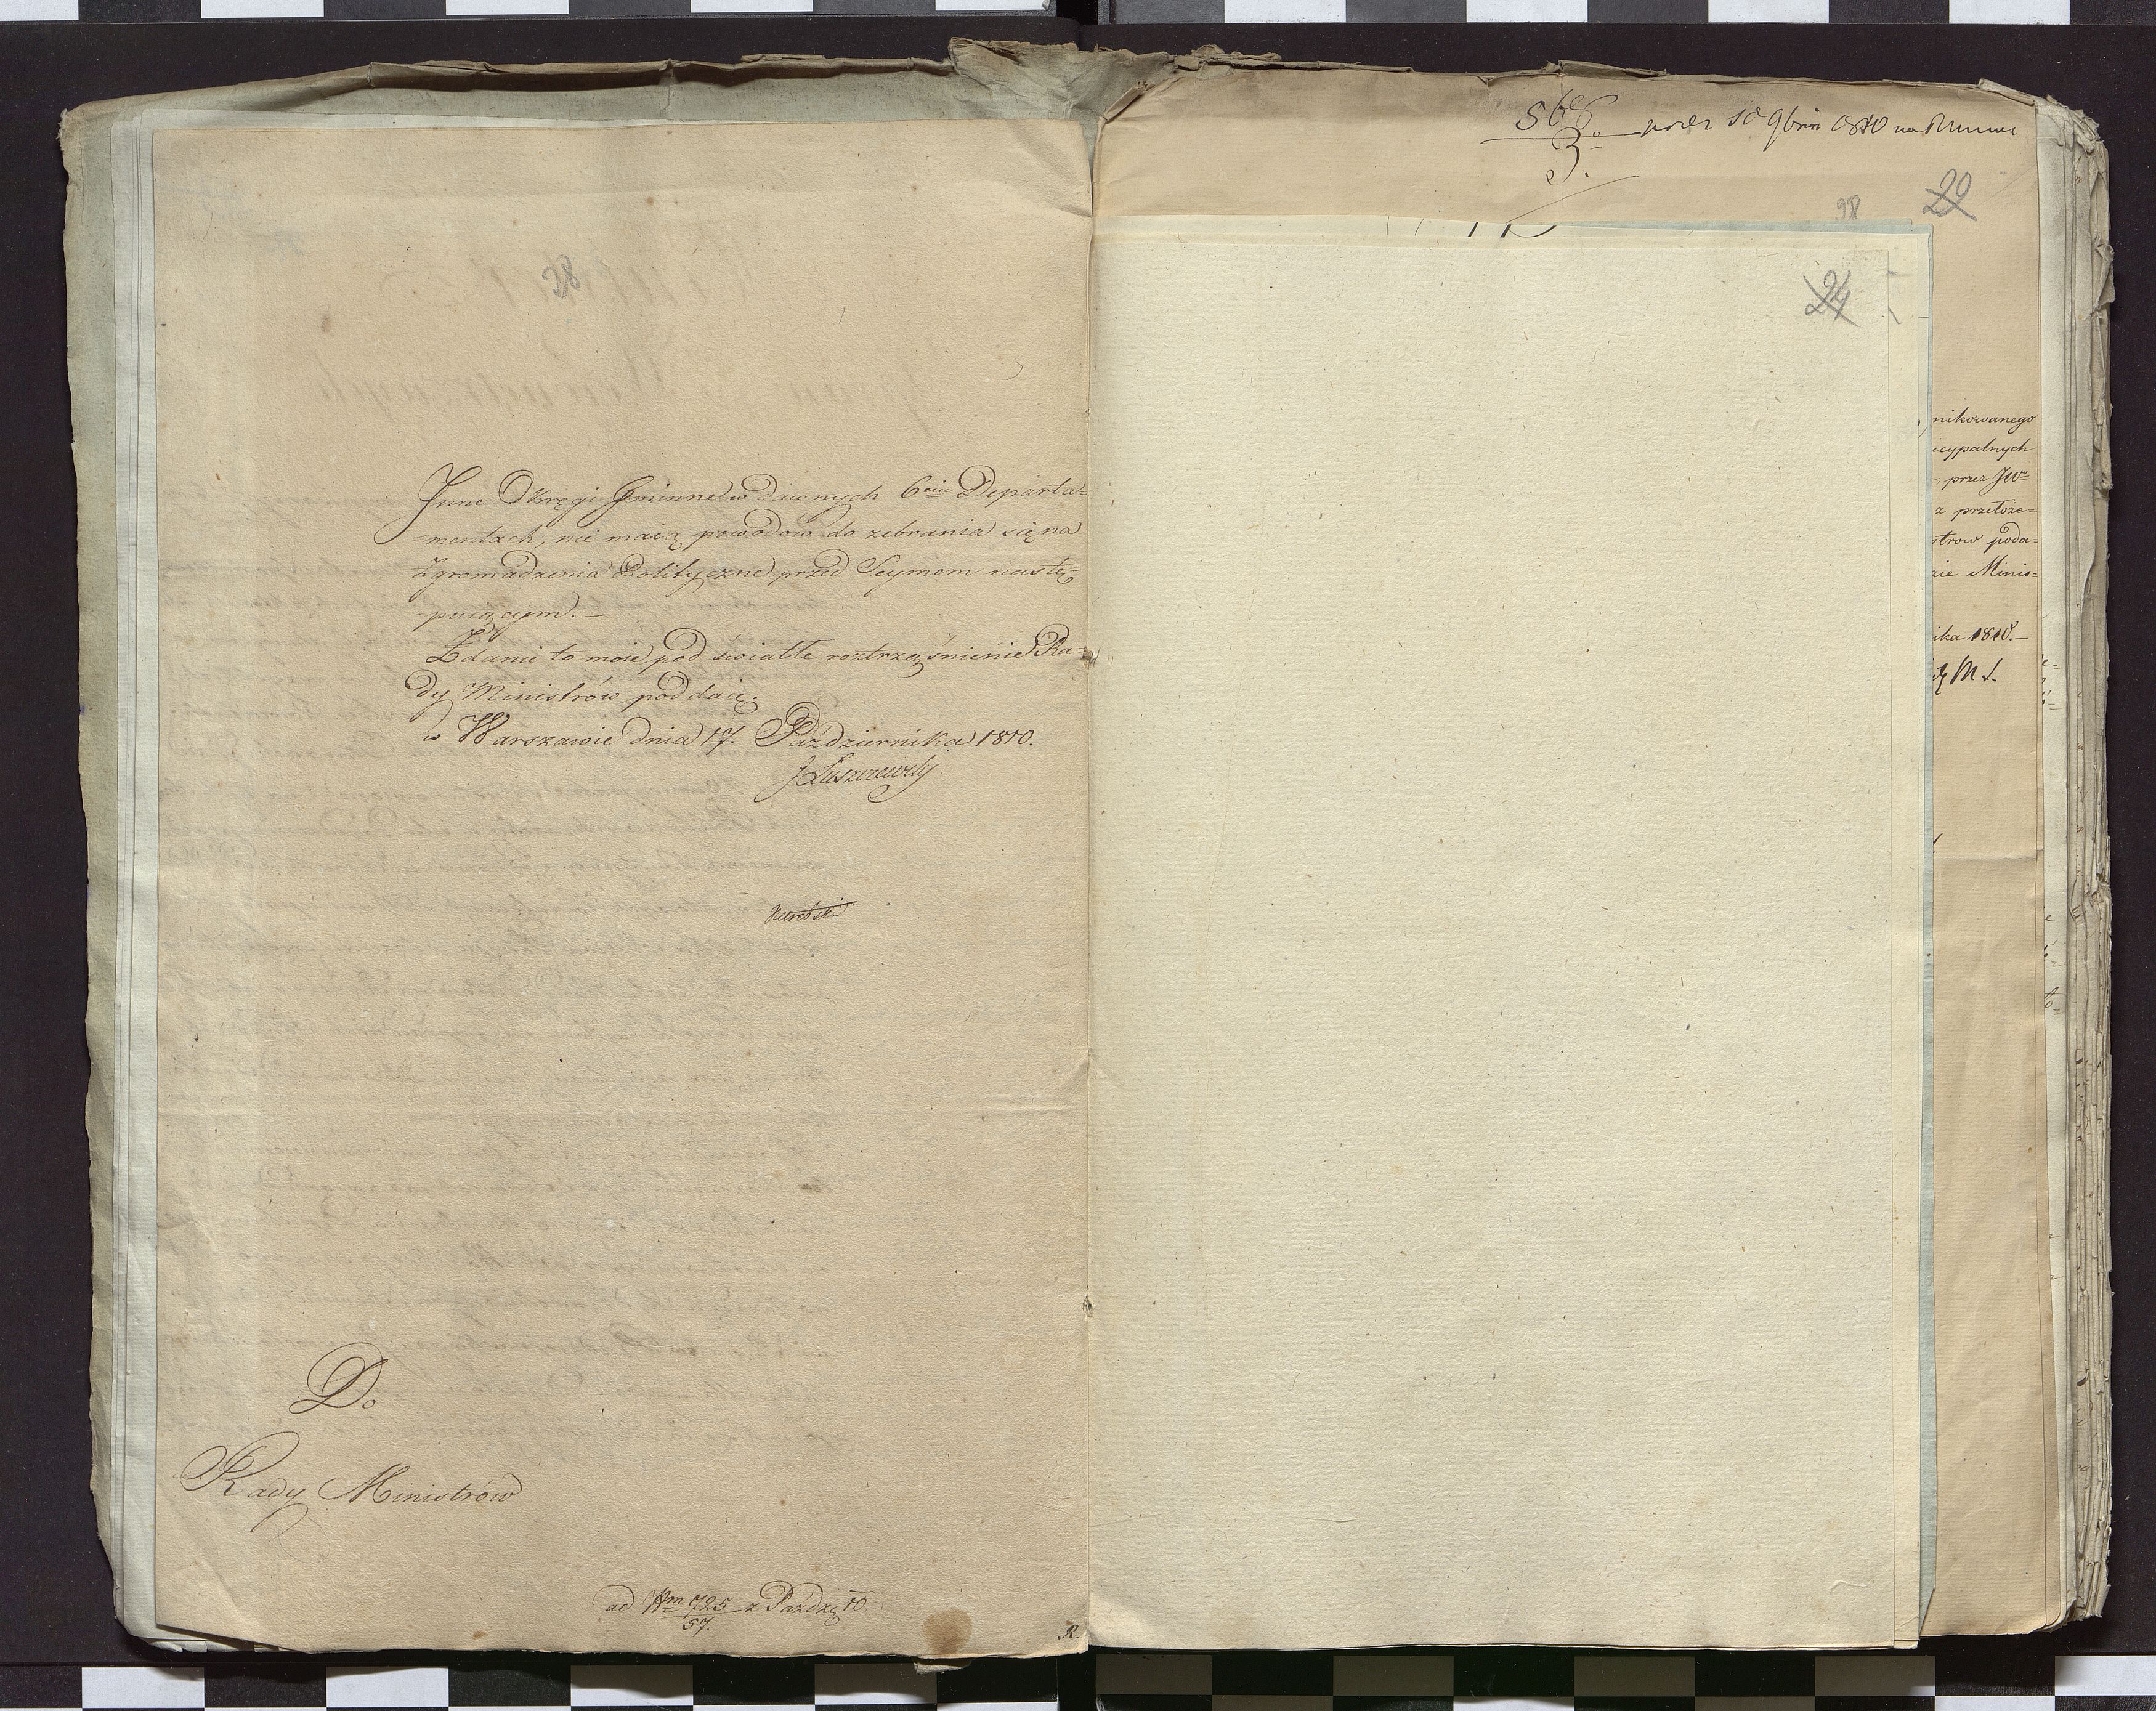 28
Jnne Okręgi Gminne w dawnych 6ciu Departa=
=mentach, nie maią powodow do zebrania się na
Zgromadzenia Polityczne przed Seymem nastę=
puiącym. —
Zdanie to moie pod światłe roztrząśnienie Ra=
dy Ministrów poddaię.
w Warszawie dnia 17. Października 1810.
JŁuszczewsky
Do
Rady Ministrów
ad Nm 725 z Paźdz: 10
57.
R.
566
3.
1810 na
29
98
24
nikowanego
icypalnych
przez JW
z przełoże=
strow poda=
zie Minis=
ika 1810. —
M S.